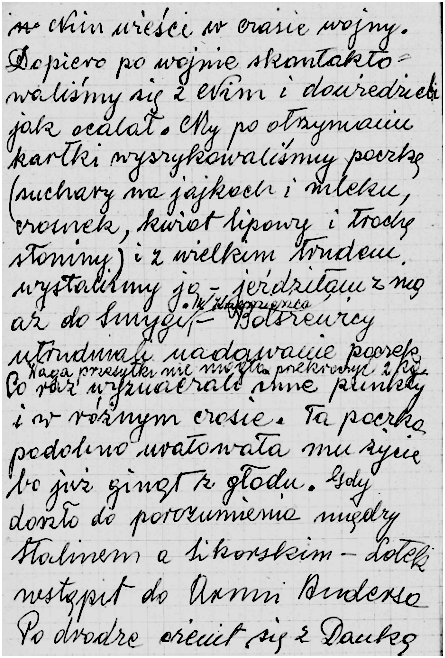 o Nim wieści w czasie wojny.
Dopiero po wojnie skontakto-
waliśmy się z Nim i dowiedzieli
jak ocalał. My po otrzymaniu
kartki wyszykowaliśmy paczkę
(suchary na jajkach i mleku,
czosnek, kwiat lipowy i trochę
słoniny) i z wielkim trudem
wysłaliśmy ją - jeździłam z nią
aż do Smygi, - Bolszewicy
utrudniali nadawanie paczek.
Waga przesyłki nie mogła przekroczyć 2 kg.
Co raz wyznaczali inne punkty
i w różnym czasie. Ta paczka
podobno uratowała mu życie
bo już ginął z głodu. Gdy
doszło do porozumienia między
Stalinem a Sikorskim - Lotek
wstąpił do Armii Andersa
Po drodze ożenił się z Danką